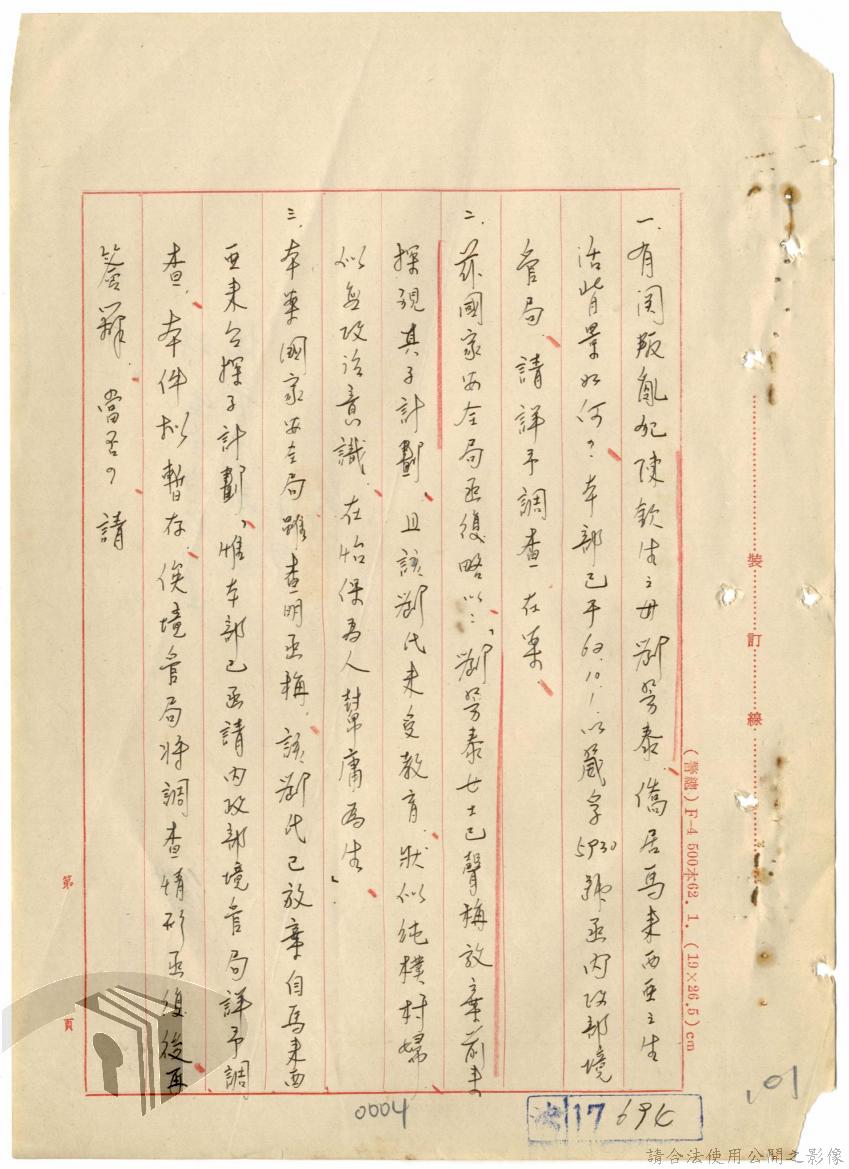 一、有關叛亂犯陳欽生之母劉勞泰僑居馬來西亞之生
活背景如何?本部已于63.10.1.以箴字5930號函內政部境
管局請詳予調查在案。
二、茲國家安全局函復略以:「劉勞泰女士已聲稱放棄前來
探視其子計劃、且該劉氏未受教育、狀似純樸村婦
似無政治意識、在怡保為人幫庸為生」
三、本案國家安全局雖查明函稱、該劉氏已放棄自馬來西
亞來台探子計劃、惟本部已函請內政部境管局詳予調
查、本件擬暫存、俟境管局將調查情形函復後再
簽辦、當否?請
裝訂線
(普謄)F-4 500本62. 1. (19×26.5)cm
第 頁
0004
17 694
101
請合法使用公開之影像